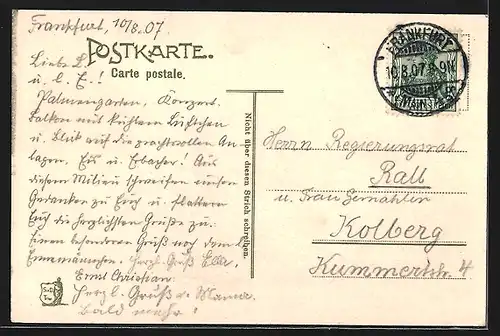 Frankfurt, 10/8.07
POSTKARTE.
Carte postale.
Liebe L.
u. l. E.!
Palmengarten, Konzert,
Balkon mit kühlem Lüftchen
u. Blick auf die prachtvollen An-
lagen. Eis u. Erbacher! Aus
diesem Milieu schweifen unsere
Gedanken zu Euch u. flattern
Euch die herzlichsten Grüße zu.
Einen besonderen Gruß noch dem
Herzl. Gruß Ella,
Ernst Christian.
Herzl. Gruß v. Mama.
bald mehr!
Nicht über diesen Strich schreiben.
FRANKFURT
10.8.07.
(MAIN)
Herrn Regierungsrat
Rall
u. Frau Gemahlin
Kolberg
Kummertstr. 4